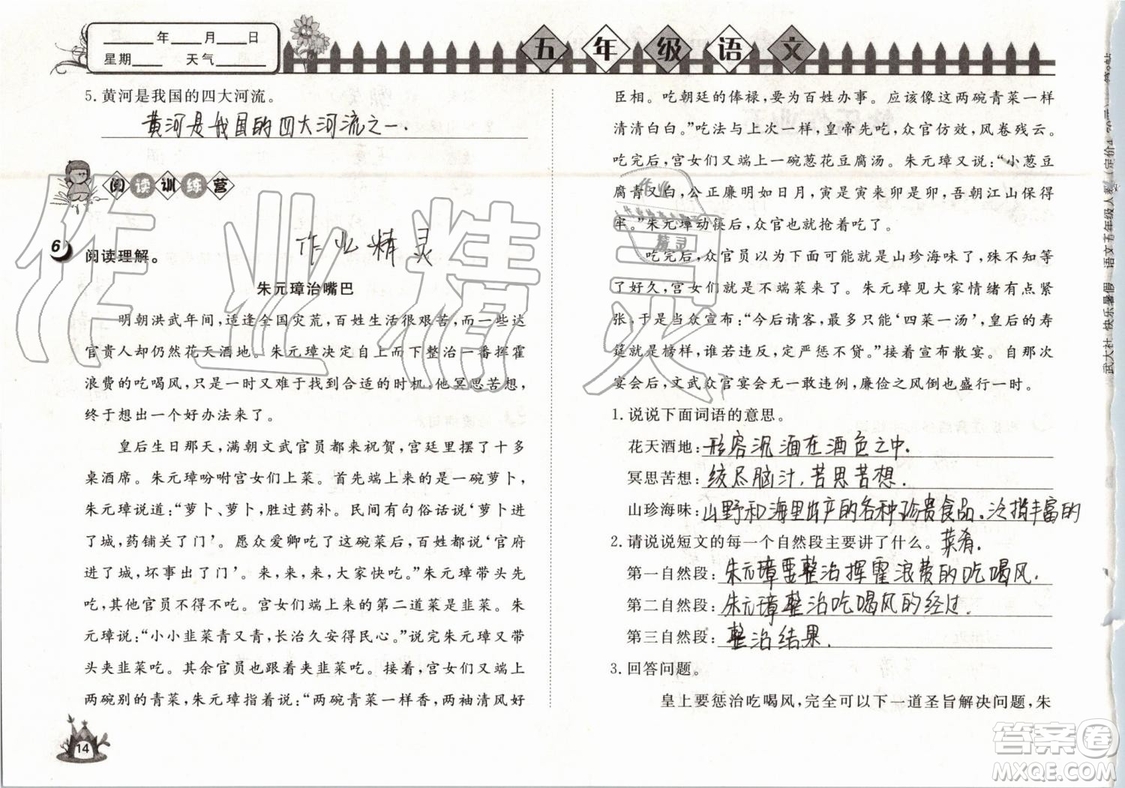 ____年____月____日
星期____ 天气____
五年级语文
5. 黄河是我国的四大河流。
黄河是我国的四大河流之一.
阅读训练营
6 阅读理解。
作业精灵
朱元璋治嘴巴
明朝洪武年间,适逢全国灾荒,百姓生活十分艰苦,而一些达
官贵人却仍然花天酒地。朱元璋决定自上而下整治一番挥霍
浪费的吃喝风,只是一时难于找到合适的时机,他冥思苦想,
终于想出一个好办法来了。
皇后生日那天,满朝文武官员都来祝贺,宫廷里摆了好多
桌酒席。朱元璋吩咐宫女们上菜。首先端上来的是一碗萝卜,
朱元璋说道:“萝卜,萝卜,胜过药补。民间有句俗话说‘萝卜进
了城,药铺关了门’。愿众爱卿吃了这碗菜后,百姓都说‘官府
进了城,坏事出了门’。来,来,来,大家快吃。”朱元璋带头先
吃,其余官员不得不吃。宫女们端上来的第二道菜是韭菜。朱
元璋说:“小小韭菜青又青,长治久安得民心。”说完朱元璋又带
头夹韭菜吃。其余官员也跟着夹韭菜吃。接着,宫女们又端上
两碗别的青菜,朱元璋指着说:“两碗青菜一样香,两袖清风好
臣相。吃朝廷的俸禄,要为百姓办事。应该像这两碗青菜一样
清清白白。”吃法与上次一样,皇帝先吃,众官仿效,风卷残云。
吃完以后,宫女们又端上一碗葱花豆腐汤。朱元璋又说:“小葱豆
腐青又白,公正廉明如日月。寅是寅来卯是卯,吾朝江山保得
牢。”朱元璋动筷后,众官也抢着吃了。
吃完后,众官员以为下面一定是山珍海味了,殊不知等
了好久,宫女们就是不端菜来了。朱元璋见大家情绪有点紧
张,于是当众宣布:“今后请客,最多只能‘四菜一汤’,皇后的寿
筵就是榜样,谁若违反,定严惩不贷。”接着宣布散宴。自那次
宴会后,文武众官无一敢违例,廉俭之风倒也盛行一时。
1. 说说下面词语的意思。
花天酒地:形容沉湎在酒色之中.
冥思苦想:绞尽脑汁,苦思苦想.
山珍海味:山野和海里出产的各种珍贵食品。泛指丰富的
菜肴.
2. 请说说短文的每一个自然段主要讲了什么。
第一自然段:朱元璋要整治挥霍浪费的吃喝风.
第二自然段:朱元璋整治吃喝风的经过.
第三自然段:整治结果.
3. 回答问题。
皇上要惩治吃喝风,完全可以下一道圣旨解决问题,朱
14
作业精灵
作业精灵
答案圈
MXQE.COM
武大社 快乐暑假 语文五年级人教